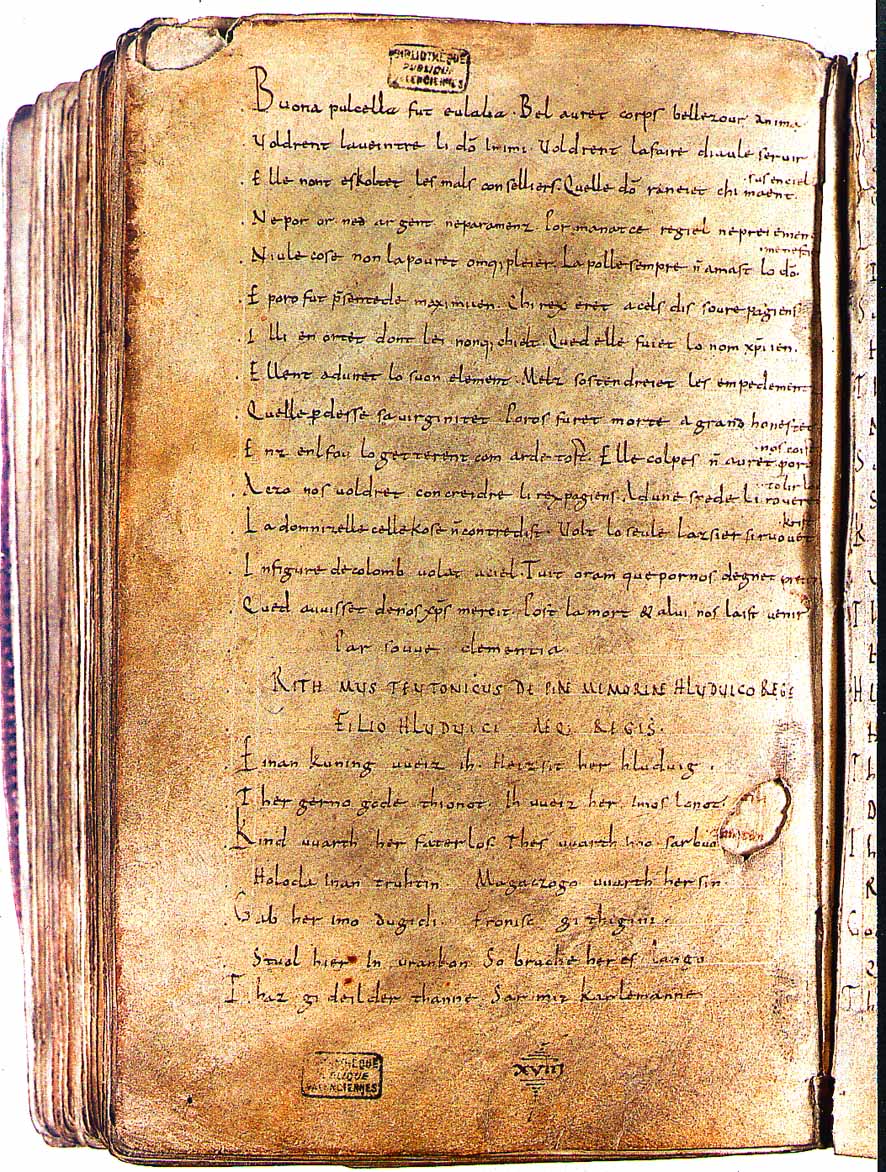 BIBLIOTHEQUE
PUBLIQUE
VALENCIENNES
Buona pulcella fut eulalia. Bel auret corps bellezour anima
Voldrent laveintre li dō inimi. Voldrent lafaire diaule servir
Elle nont eskoltet les mals conselliers. Quelle dō raneiet chi maent sus en ciel
Ne por or ned argent ne paramenz. Por manatce regiel ne preiement
Niule cose non la pouret omq; pleier. La polle sempre n̄ amast lo dō menestier
E poro fut p̄sentede maximiien. Chi rex eret a cels dis soure pagiens
Illi en ortet dont lei nonq; chielt. Qued elle fuiet lo nom xp̄iien.
Ellent adunet lo suon element. Melz sostendreiet les empedementz
Quelle p̱desse sa virginitet. Poros furet morte a grand honestet
Enz enl fou lo getterent com arde tost. Elle colpes n̄ auret por nos coist
A czo nos voldret concreidre li rex pagiens. Ad une spede li roveret tolir lo
La domnizelle celle kose n̄ contredist. Volt lo seule lazsier si ruovet krist
In figure de colomb volat a ciel. Tuit oram que por nos degnet preier
Qued auuisset de nos xp̄s mercit. Post la mort & a lui nos laist venir
Par souue clementia
RITHMUS TEUTONICUS DE PIAE MEMORIAE HLUDUICO REGE
FILIO HLUDUICI AEQ; REGIS.
Einan kuning uueiz ih. Heizsit her hluduig.
Ther gerno gode thionot. Ih uueiz her imos lonot.
Kind uuarth her faterlos. Thes uuarth imo sar buoz
Holoda inan truhtin. Magaczogo uuarth her sin.
Gab her imo dugidi. Fronisc githigini.
Stual hier in urankon. So bruche her es lango
Thaz gideilder thanne. Sar mit karlemanne
BIBLIOTHEQUE
PUBLIQUE
VALENCIENNES
XVIII